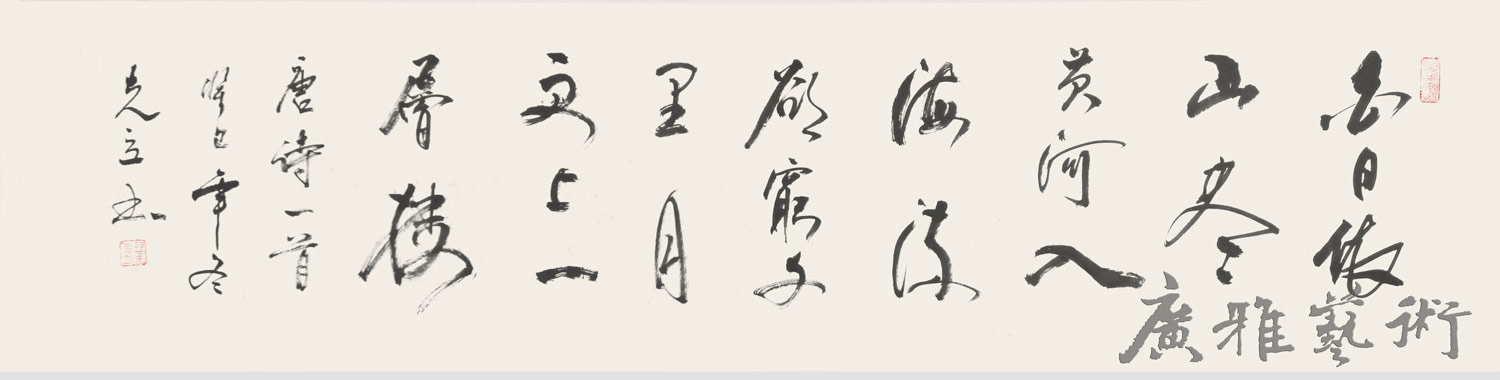 白日依
山尽
黄河入
海流
欲窮千
里目
更上一
層楼
唐诗一首
巳年冬
光立书
廣雅藝術